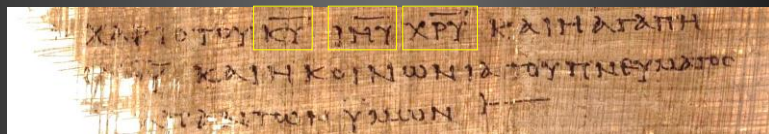 ΧΑΡΙϹ ΤΟΥ Κ̅Υ̅ ΙΗ̅Υ̅ ΧΡ̅Υ̅ ΚΑΙ Η ΑΓΑΠΗ
ΚΑΙ Η ΚΟΙΝΩΝΙΑ ΤΟΥ ΠΝΕΥΜΑΤΟϹ
ΠΑΝΤΩΝ ΥΜΩΝ